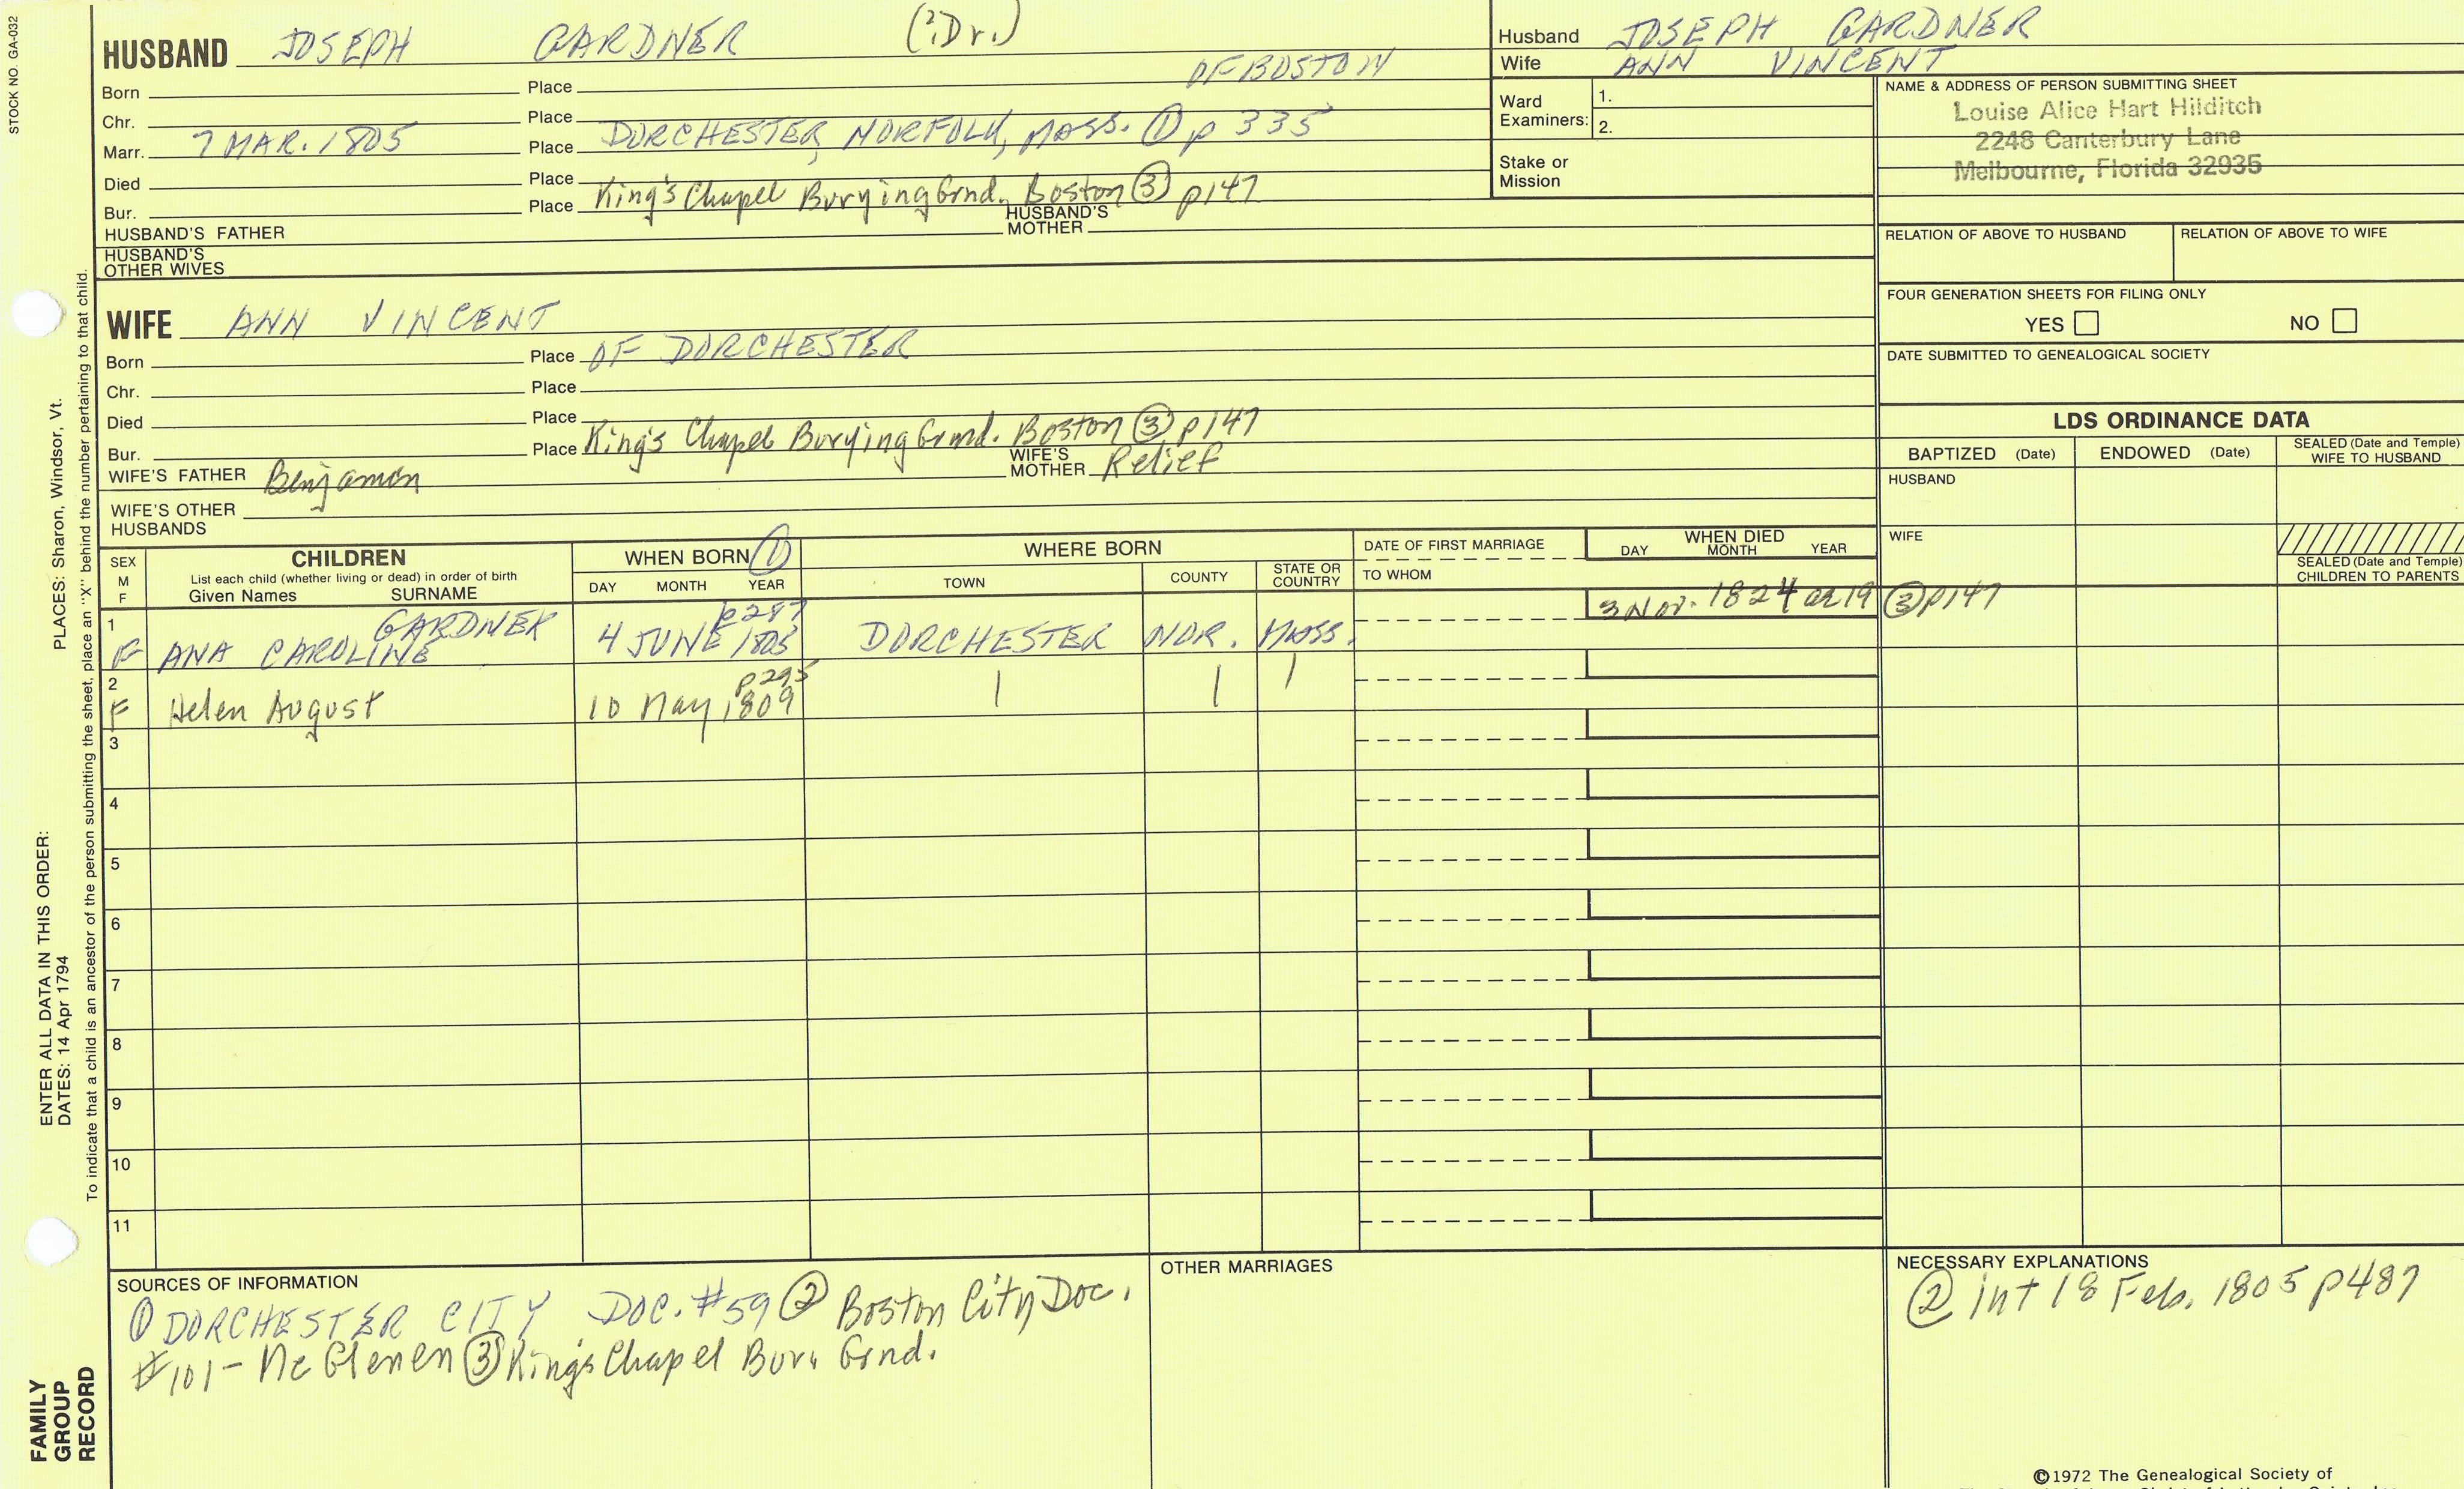 STOCK NO. GA-032
HUSBAND JOSEPH GARDNER (?Dr.)
OF BOSTON
Born Place
Chr. Place
Marr. 7 MAR. 1805 Place DORCHESTER, NORFOLK, MASS. ① p 335
Died Place
Bur. Place King's Chapel Burying Grnd. Boston ③ p147
HUSBAND'S FATHER HUSBAND'S MOTHER
HUSBAND'S OTHER WIVES
Husband JOSEPH GARDNER
Wife ANN VINCENT
Ward Examiners: 1.
2.
Stake or Mission
NAME & ADDRESS OF PERSON SUBMITTING SHEET
Louise Alice Hart Hilditch
2248 Canterbury Lane
Melbourne, Florida 32935
RELATION OF ABOVE TO HUSBAND RELATION OF ABOVE TO WIFE
FOUR GENERATION SHEETS FOR FILING ONLY
YES NO
DATE SUBMITTED TO GENEALOGICAL SOCIETY
WIFE ANN VINCENT
Born Place OF DORCHESTER
Chr. Place
Died Place
Bur. Place King's Chapel Burying Grnd. Boston ③ p147
WIFE'S FATHER Benjamen WIFE'S MOTHER Relief
WIFE'S OTHER HUSBANDS
LDS ORDINANCE DATA
BAPTIZED (Date) ENDOWED (Date) SEALED (Date and Temple) WIFE TO HUSBAND
HUSBAND
WIFE
SEALED (Date and Temple) CHILDREN TO PARENTS
SEX M F
CHILDREN
List each child (whether living or dead) in order of birth
Given Names SURNAME
WHEN BORN ①
DAY MONTH YEAR
WHERE BORN
TOWN COUNTY STATE OR COUNTRY
DATE OF FIRST MARRIAGE
TO WHOM
WHEN DIED
DAY MONTH YEAR
1 GARDNER p287 3 Nov. 1824 ae 19 ③ p147
F ANA CAROLINE 4 JUNE 1805 DORCHESTER NOR. MASS.
2 p295
F Helen August 10 May 1809
3
4
5
6
7
8
9
10
11
SOURCES OF INFORMATION
① DORCHESTER CITY DOC. #59 ② Boston City Doc.
#101 - Mc Glenen ③ King's Chapel Bur. Grnd.
OTHER MARRIAGES
NECESSARY EXPLANATIONS
② int 18 Feb. 1805 p487
©1972 The Genealogical Society of
ENTER ALL DATA IN THIS ORDER:
DATES: 14 Apr 1794 PLACES: Sharon, Windsor, Vt.
To indicate that a child is an ancestor of the person submitting the sheet, place an "X" behind the number pertaining to that child.
FAMILY
GROUP
RECORD